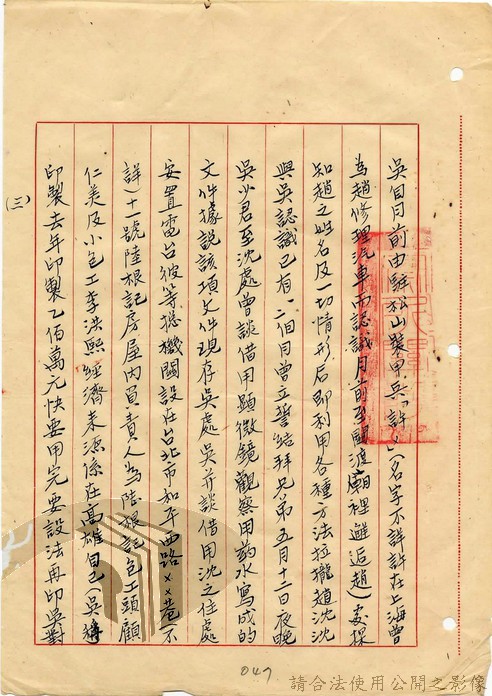 吳自日前由駐松山裝甲兵「許×」(名字不詳許在上海曾
為趙修理汽車而認識月前至國渡廟裡邂逅趙)處探
知趙之姓名及一切情形后即利用各種方法拉攏趙沈沈
與吳認識已有一、二個月曾立誓結拜兄弟五月十二日夜晚
吳少君至沈處曾談借用顯微鏡觀察用药水寫成的
文件據說該項文件現存吳處吳并談借用沈之住處
安置電台彼等總機關設在台北市和平西路××巷(不
詳)十一號陸根記房屋內負責人為陸根記包工頭顧
仁美及小包工李洪熙經濟来源係在高雄自己(吳稱
印製去年印製乙佰萬元快要用完要設法再印吳對
(三)
047
請合法使用公開之影像